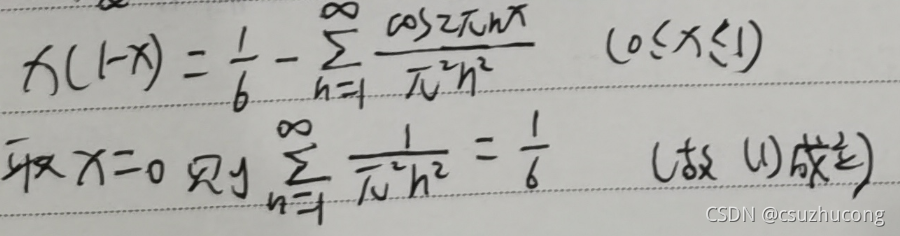 x(1-x) = 1/6 - ∑_{n=1}^{∞} cos2πnx / π²n² (0≤x≤1)
取x=0 则 ∑_{n=1}^{∞} 1 / π²n² = 1/6 (故 (1) 成立)
CSDN @csuzhucong